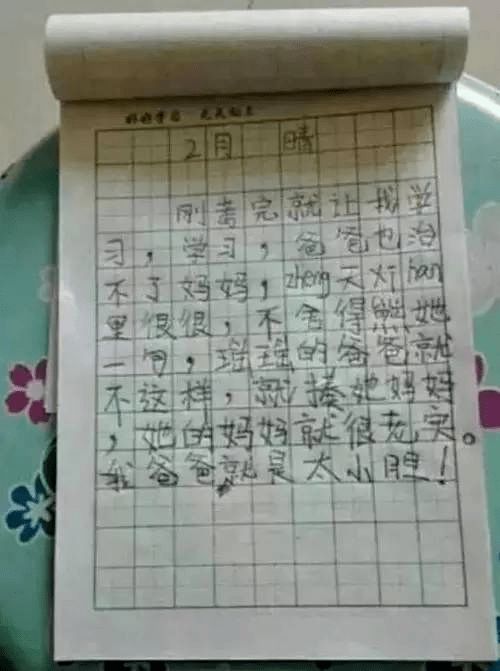 好好学习 天天向上
2月 晴
刚苦完就让我学
习，学习，爸爸也治
不了妈妈，zheng天对han
里很很，不舍得熊她
一句，瑶瑶的爸爸就
不这样，就揍她妈妈
，她的妈妈就很老实。
我爸爸就是太小胆！